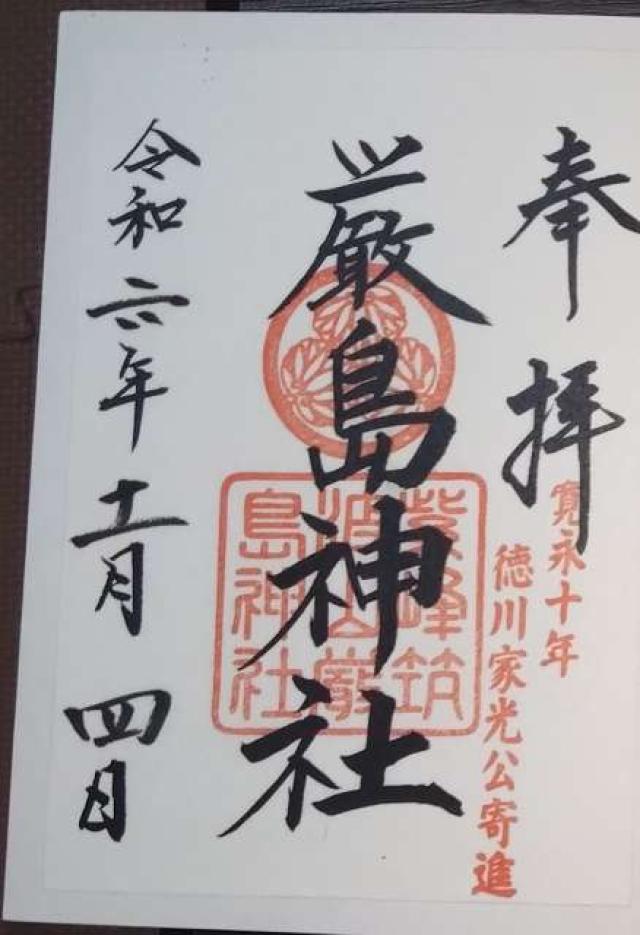 奉拝
寛永十年
徳川家光公寄進
厳島神社
紫峰筑
波山厳
島神社
令和六年十一月四日